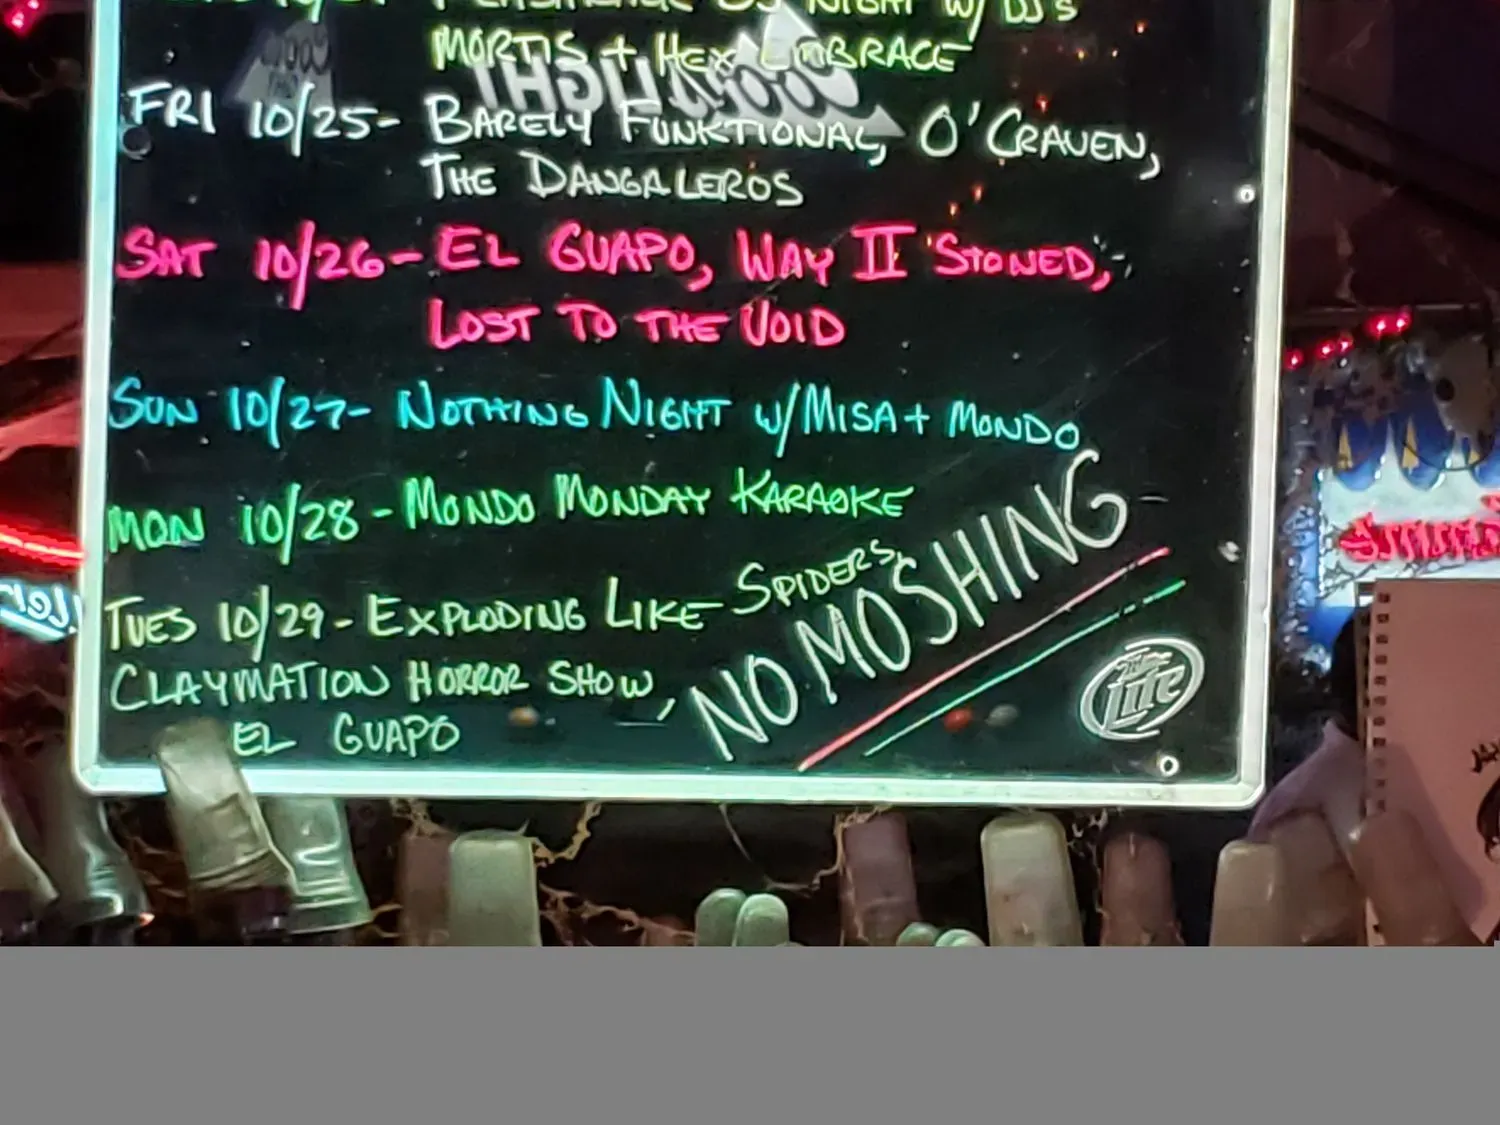 NIGHT W/ DJS
MORTIS + HEX EMBRACE
FRI 10/25- BARELY FUNKTIONAL, O'CRAVEN,
THE DANGALEROS
SAT 10/26- EL GUAPO, WAY II STONED,
LOST TO THE VOID
SUN 10/27- NOTHING NIGHT W/MISA + MONDO
MON 10/28- MONDO MONDAY KARAOKE
TUES 10/29- EXPLODING LIKE SPIDERS,
CLAYMATION HORROR SHOW,
EL GUAPO
NO MOSHING
Miller
Lite